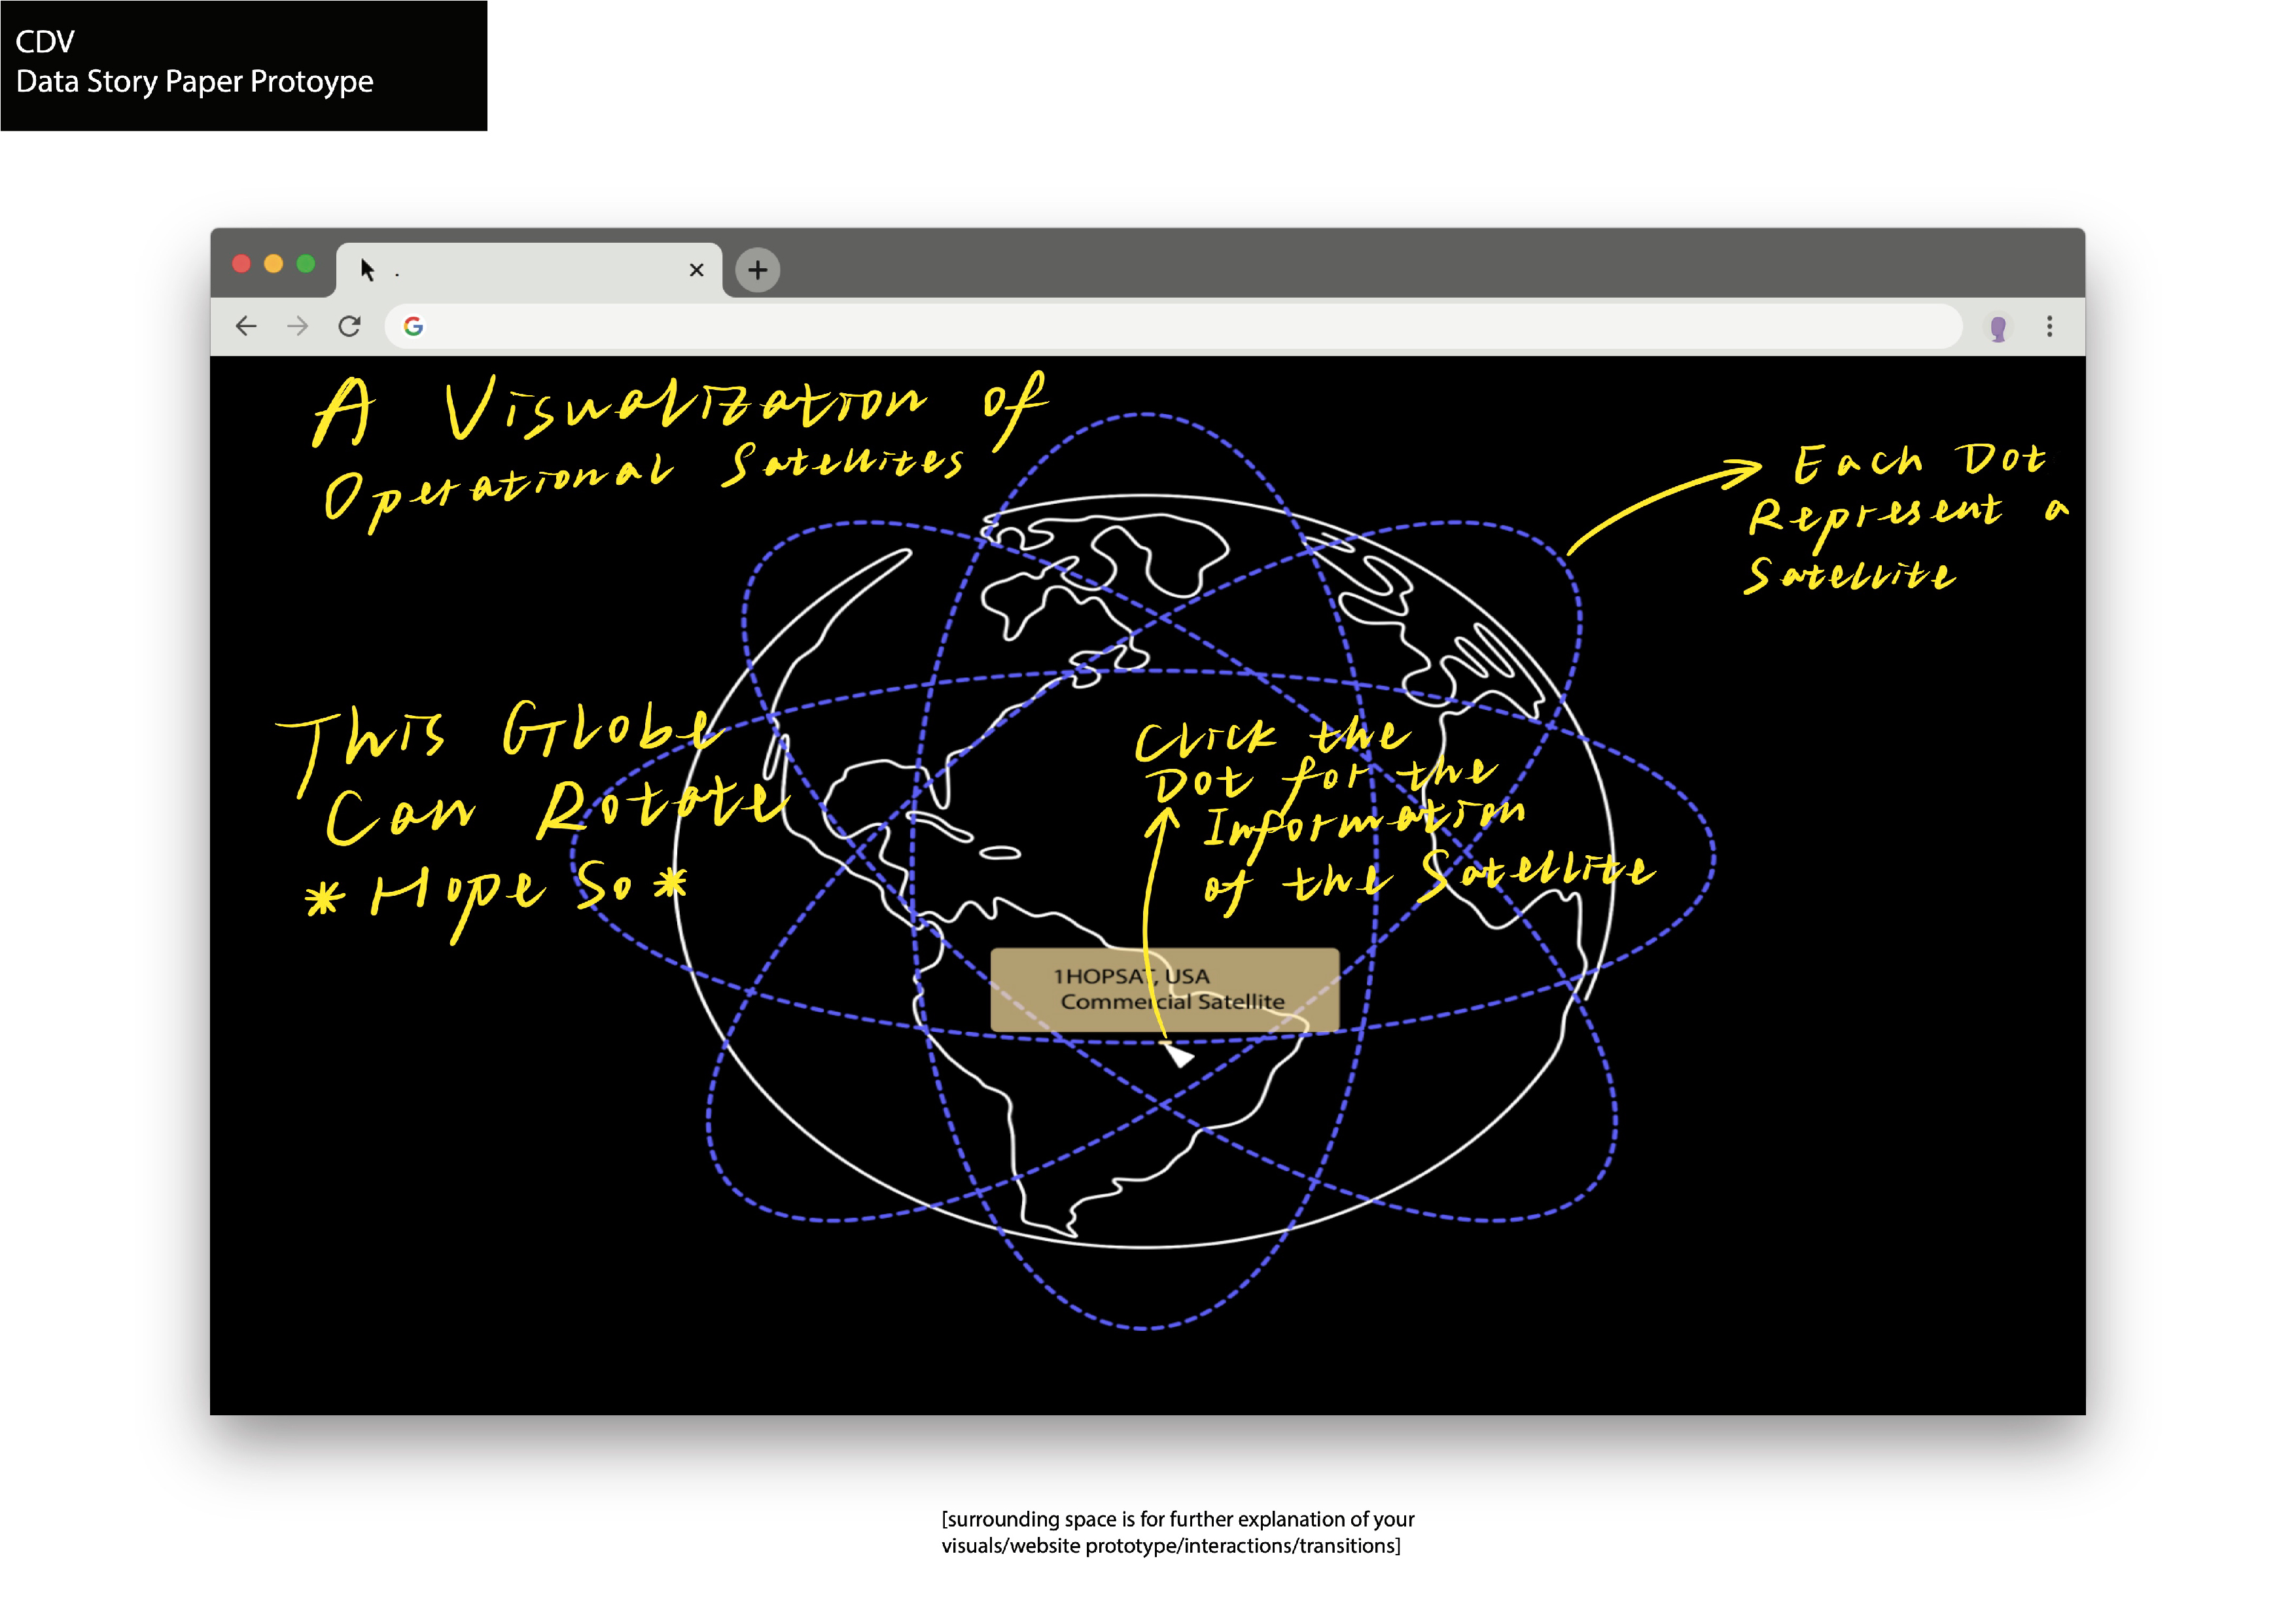 CDV
Data Story Paper Protoype
A Visualization of
Operational Satellites
Each Dot
Represent a
Satellite
This Globe
Can Rotate
* Hope So *
Click the
Dot for the
Information
of the Satellite
1HOPSAT, USA
Commercial Satellite
[surrounding space is for further explanation of your
visuals/website prototype/interactions/transitions]